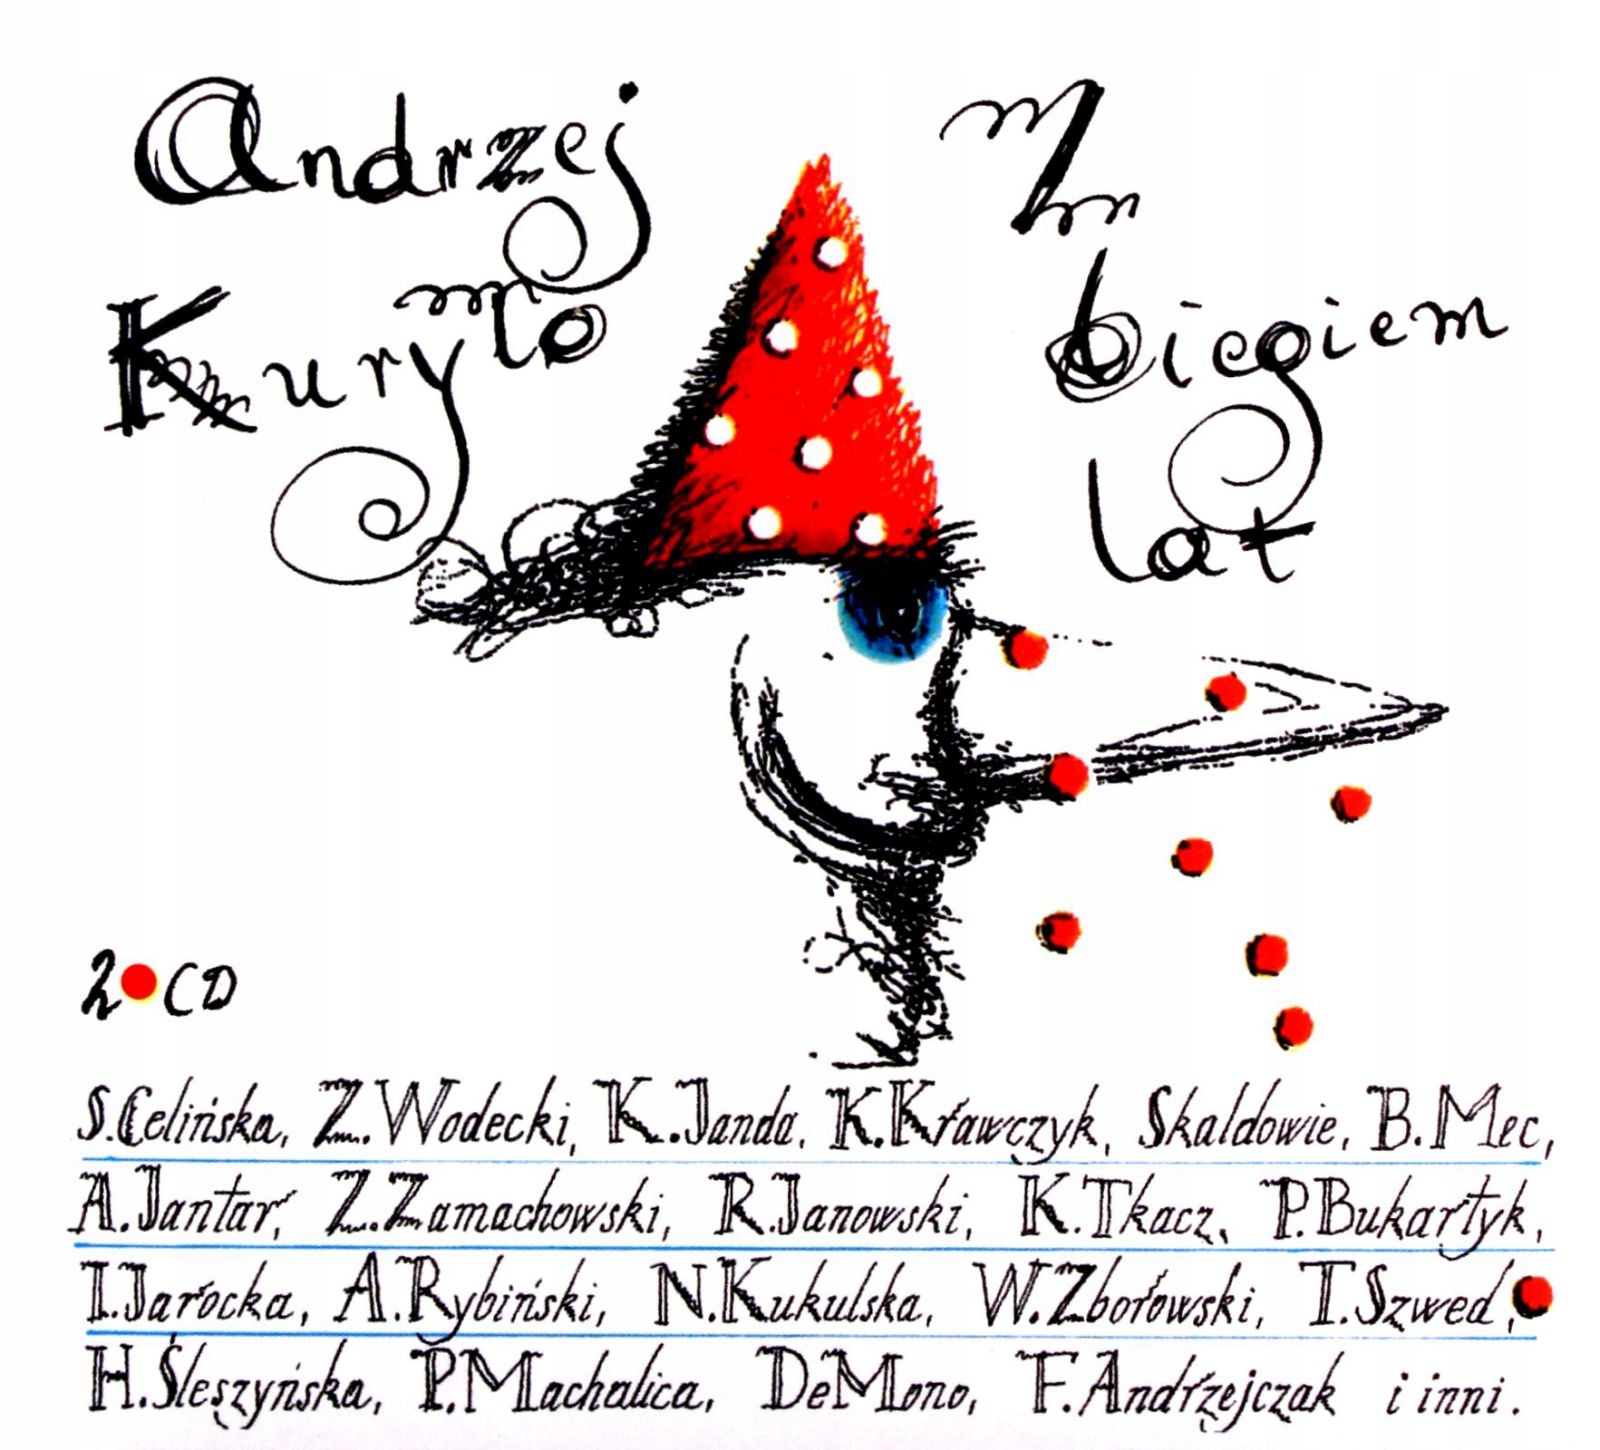 Andrzej
Kuryło
Z
biegiem
lat
2 CD
S. Celińska, Z. Wodecki, K. Janda, K. Krawczyk, Skaldowie, B. Mec,
A. Jantar, Z. Zamachowski, R. Janowski, K. Tkacz, P. Bukartyk,
I. Jarocka, A. Rybiński, N. Kukulska, W. Zborowski, T. Szwed,
H. Śleszyńska, P. Machalica, De Mono, F. Andrzejczak i inni.